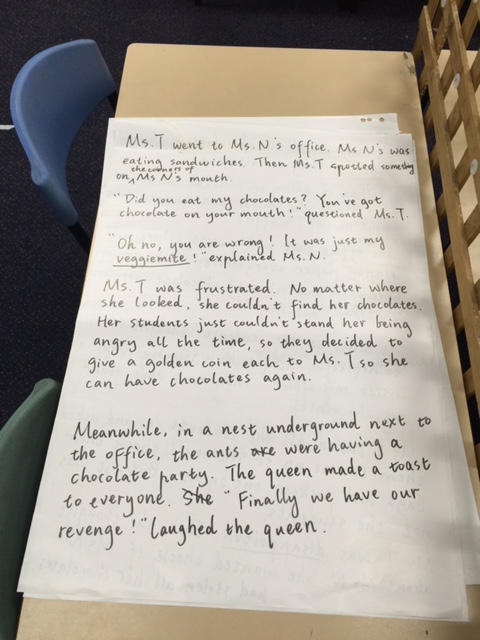 Ms. T went to Ms. N's office. Ms. N's was
eating sandwiches. Then Ms. T spotted something
on the corners of Ms N's mouth.
"Did you eat my chocolates? You've got
chocolate on your mouth!" questioned Ms. T.
"Oh no, you are wrong! It was just my
veggiemite!" explained Ms. N.
Ms. T was frustrated. No matter where
she looked, she couldn't find her chocolates.
Her students just couldn't stand her being
angry all the time, so they decided to
give a golden coin each to Ms. T so she
can have chocolates again.
Meanwhile, in a nest underground next to
the office, the ants are were having a
chocolate party. The queen made a toast
to everyone. She "Finally we have our
revenge!" laughed the queen.